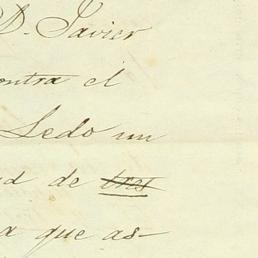 D. Javier
ontra el
Ledo un
ad de tres
a que as-